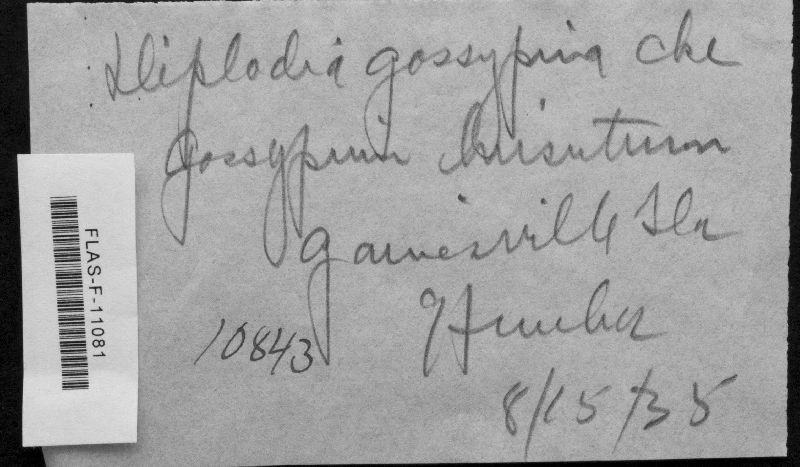 Diplodia gossypina Cke
Gossypium hirsutum
Gainesville Fla
10843
8/15/35
FLAS-F-11081